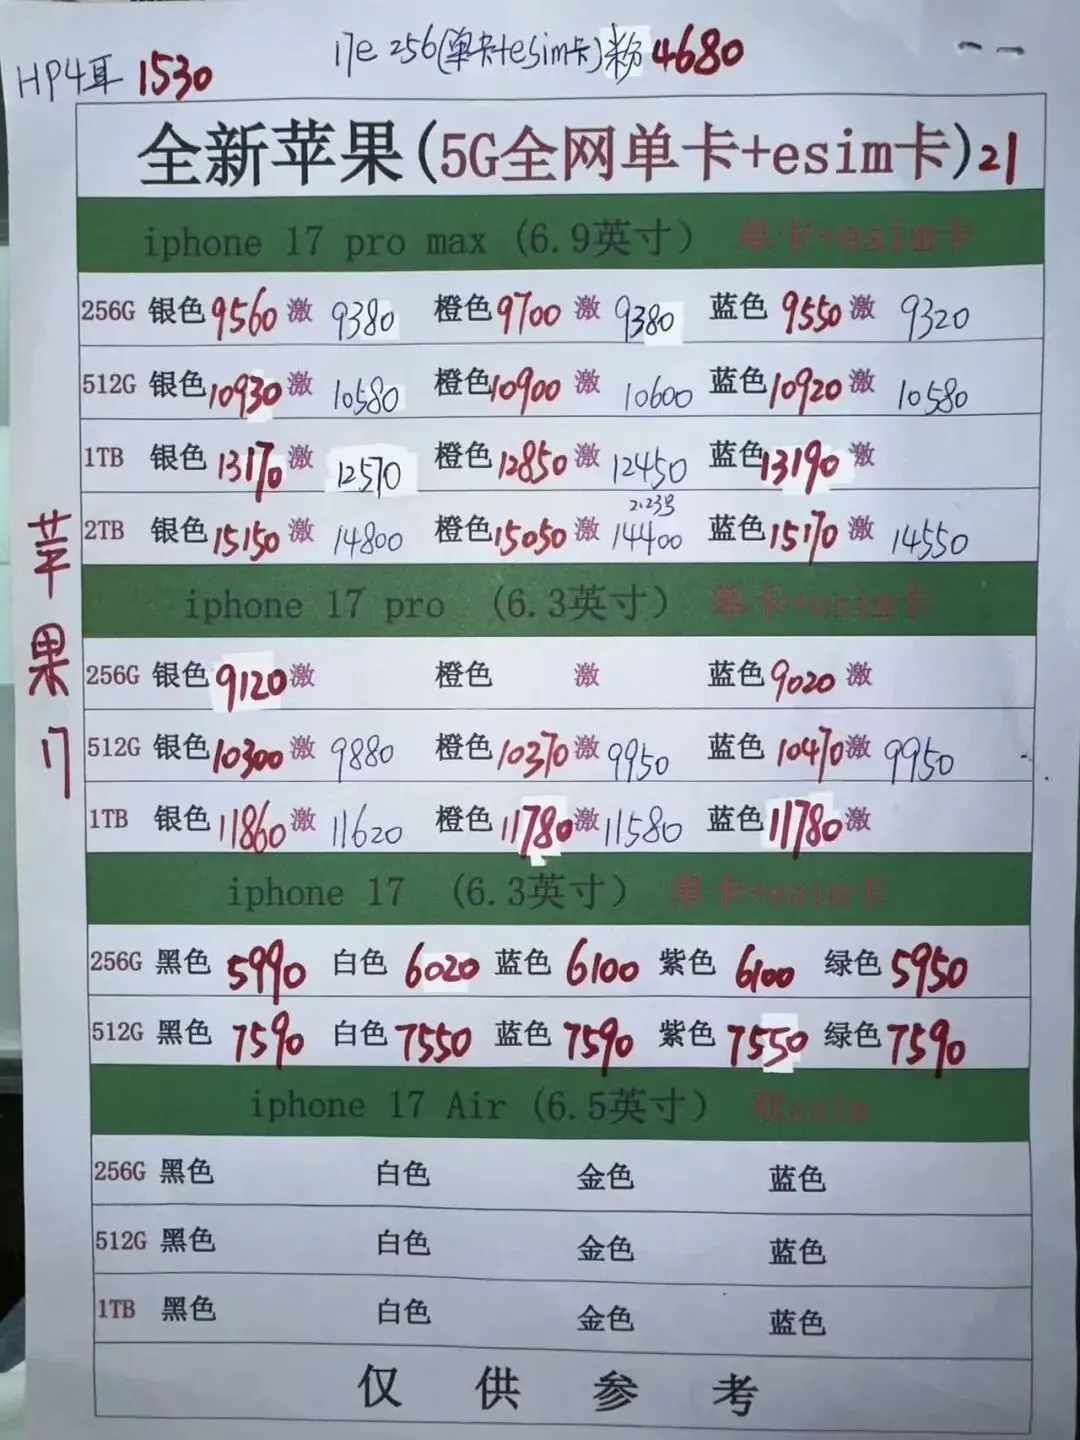 17e 256(单卡+esim卡)粉 4680
HP4耳 1530
全新苹果(5G全网单卡+esim卡)21
iphone 17 pro max (6.9英寸) 单卡+esim卡
256G 银色 9560 激 9380 橙色 9700 激 9380 蓝色 9550 激 9320
512G 银色 10930 激 10580 橙色 10900 激 10600 蓝色 10920 激 10580
1TB 银色 13170 激 12570 橙色 12850 激 12450 蓝色 13190 激
2.23号
2TB 银色 15150 激 14800 橙色 15050 激 14400 蓝色 15170 激 14550
苹果17
iphone 17 pro (6.3英寸) 单卡+esim卡
256G 银色 9120 激 橙色 激 蓝色 9020 激
512G 银色 10300 激 9880 橙色 10370 激 9950 蓝色 10470 激 9950
1TB 银色 11860 激 11620 橙色 11780 激 11580 蓝色 11780 激
iphone 17 (6.3英寸) 单卡+esim卡
256G 黑色 5990 白色 6020 蓝色 6100 紫色 6100 绿色 5950
512G 黑色 7590 白色 7550 蓝色 7590 紫色 7550 绿色 7590
iphone 17 Air (6.5英寸) 双esim
256G 黑色 白色 金色 蓝色
512G 黑色 白色 金色 蓝色
1TB 黑色 白色 金色 蓝色
仅供参考